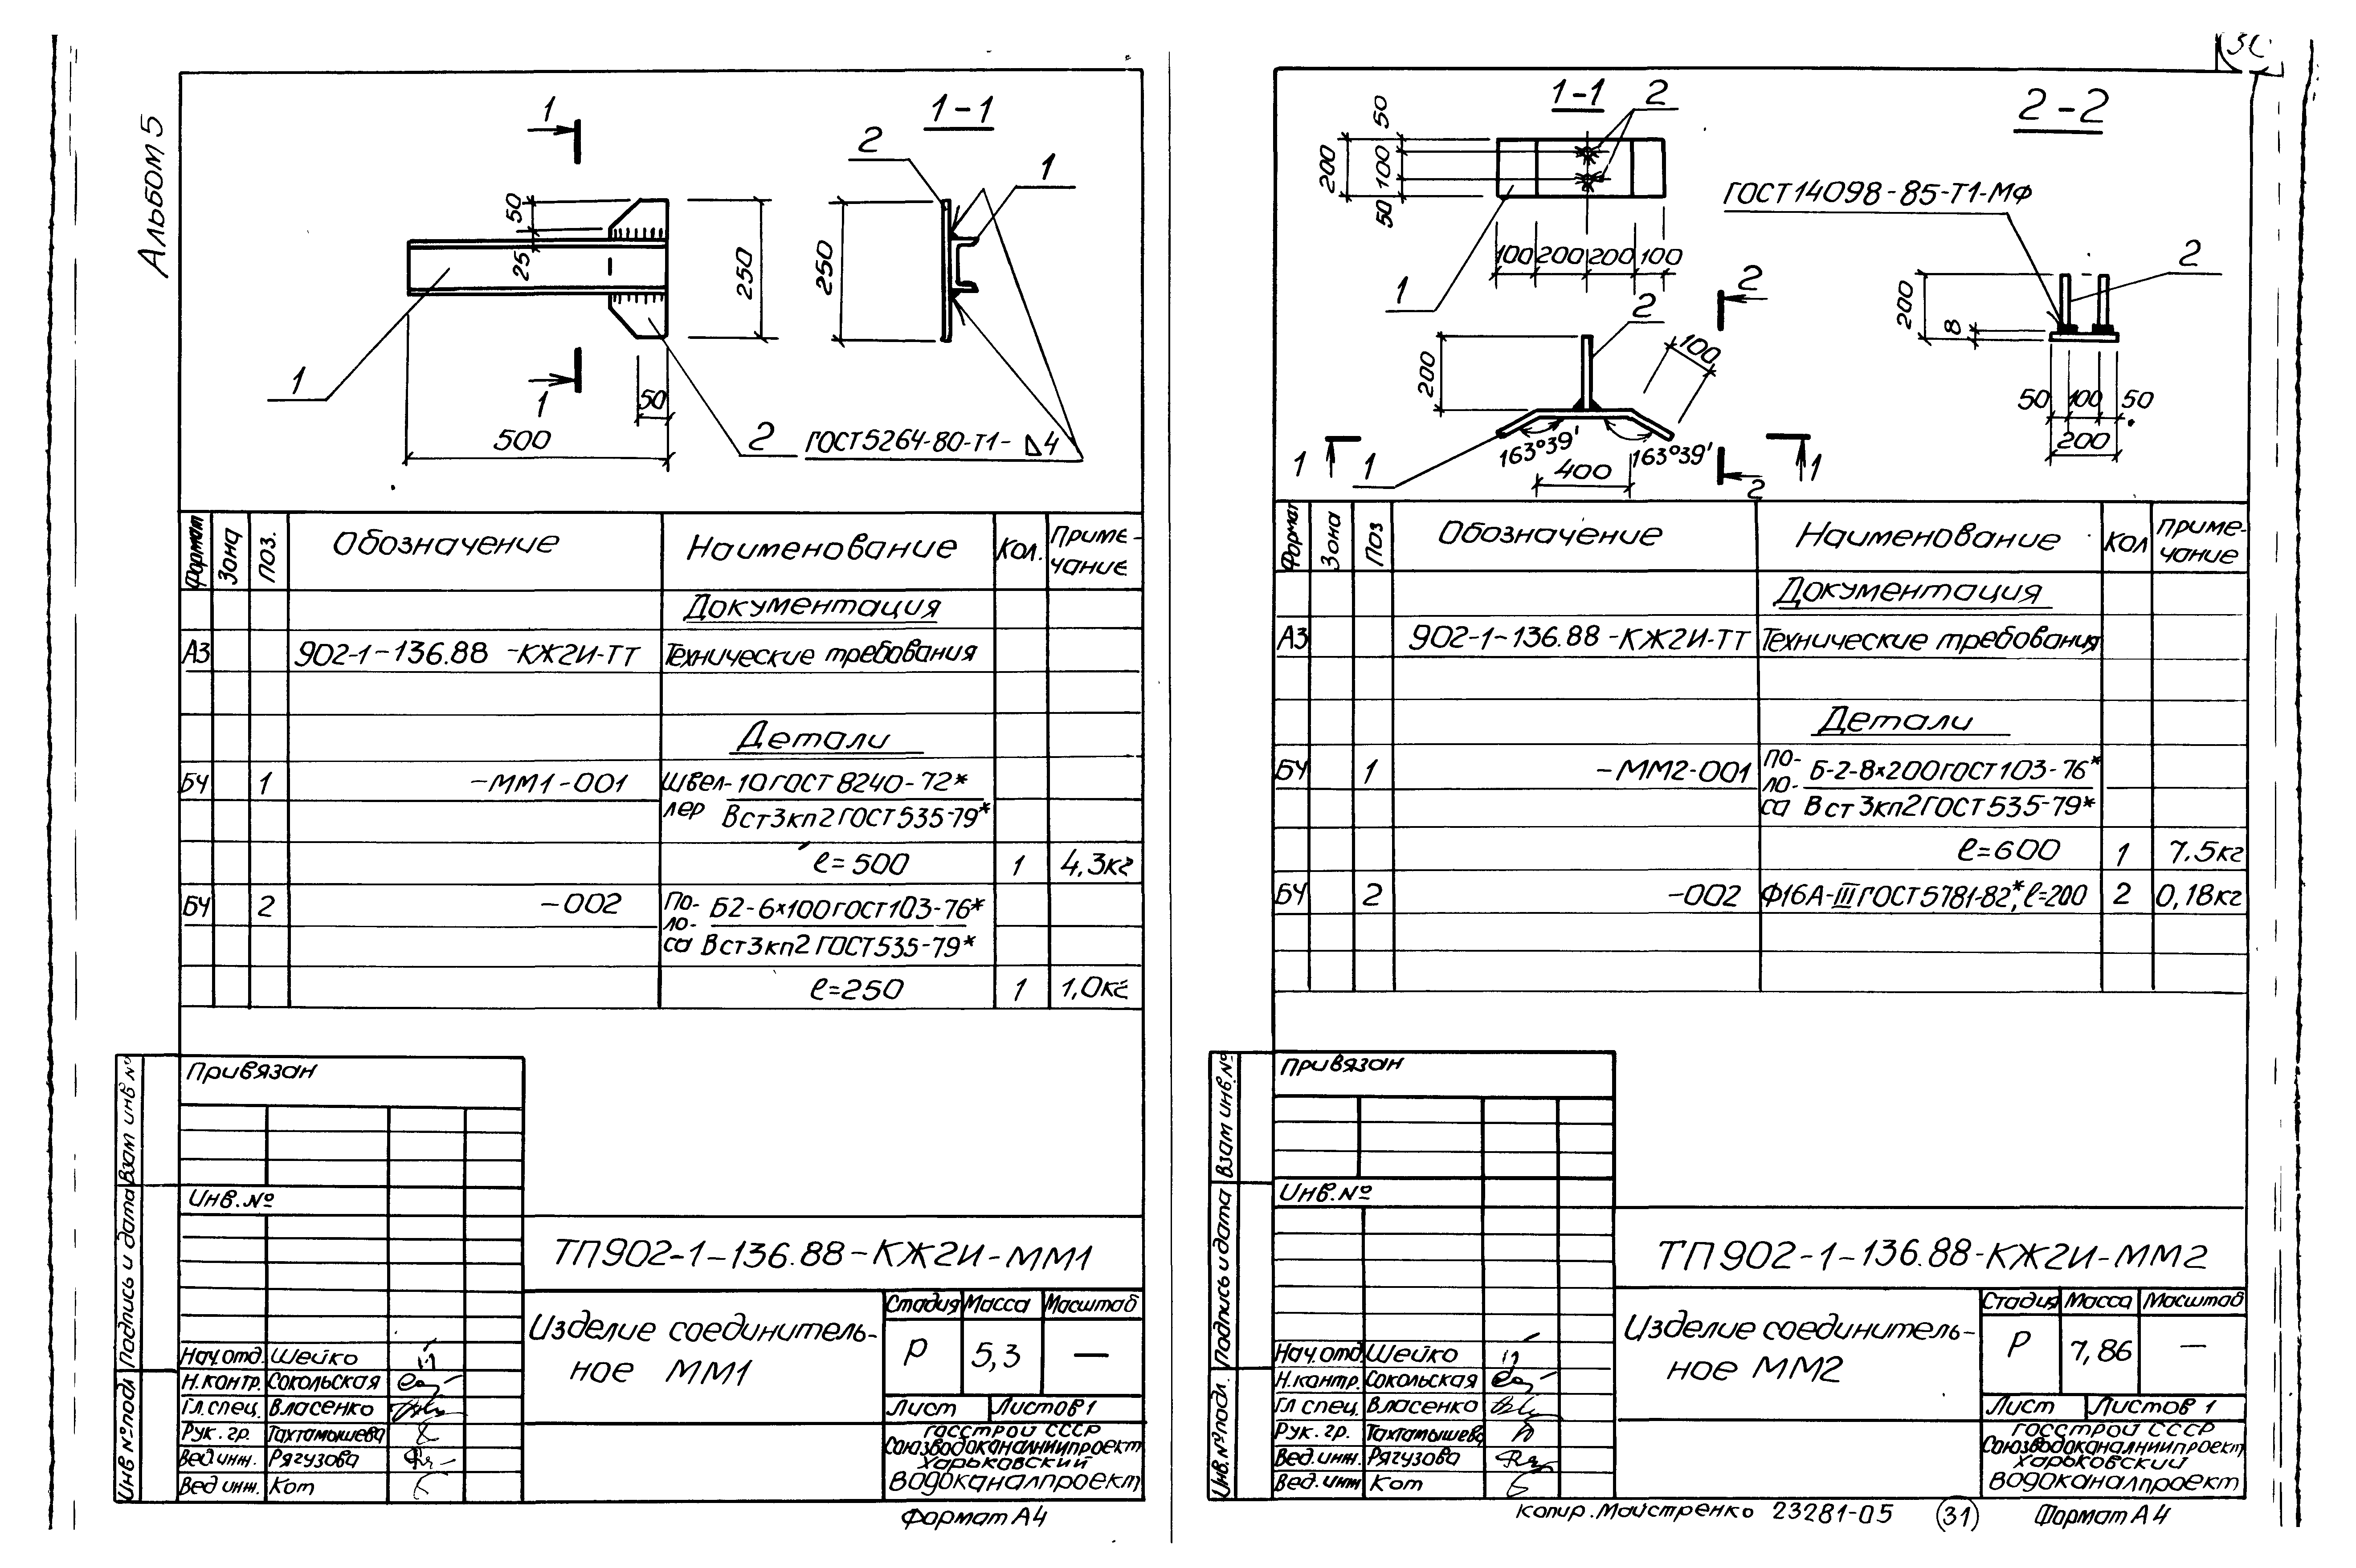 Альбом 5
1
1-1
2
1
50
25
250
250
1
1
50
500
2
ГОСТ 5264-80-Т1-◺4
Формат
Зона
Поз.
Обозначение
Наименование
Кол.
Приме-
чание
Документация
А3
902-1-136.88 -КЖ2И-ТТ
Технические требования
Детали
БЧ
1
-ММ1-001
Швел- 10 ГОСТ 8240-72*
лер Вст3кп2 ГОСТ 535-79*
ℓ=500
1
4,3кг
БЧ
2
-002
По- Б2-6×100 ГОСТ 103-76*
ло-
са Вст3кп2 ГОСТ 535-79*
ℓ=250
1
1,0кг
Привязан
Инв.№
Взам инв №
Подпись и дата
Инв № подл
ТП 902-1-136.88-КЖ2И-ММ1
Изделие соединитель-
ное ММ1
Стадия
Масса
Масштаб
Р
5,3
—
Лист
Листов 1
Нач.отд. Шейко
Н.контр. Сокольская
Гл.спец. Власенко
Рук.гр. Тахтамышева
Вед.инж. Рягузова
Вед инж. Кот
Госстрой СССР
Союзводоканалниипроект
Харьковский
Водоканалпроект
Формат А4
1-1
2
2-2
50
200
100
50
100 200 200 100
1
ГОСТ 14098-85-Т1-Мф
2
2
2
200
100
200
8
163°39'
163°39'
400
1
1
2
1
50 100 50
200
Формат
Зона
Поз
Обозначение
Наименование
Кол
Приме-
чание
Документация
А3
902-1-136.88-КЖ2И-ТТ
Технические требования
Детали
БЧ
1
-ММ2-001
По- Б-2-8×200 ГОСТ 103-76*
ло-
са Вст3кп2 ГОСТ 535-79*
ℓ=600
1
7,5кг
БЧ
2
-002
Ф16А-III ГОСТ 5781-82*, ℓ=200
2
0,18кг
Привязан
Инв.№
Взам инв.№
Подпись и дата
Инв.№ подл.
ТП 902-1-136.88-КЖ2И-ММ2
Изделие соединитель-
ное ММ2
Стадия
Масса
Масштаб
Р
7,86
—
Лист
Листов 1
Нач.отд. Шейко
Н.контр. Сокольская
Гл спец. Власенко
Рук. гр. Тахтамышева
Вед.инж. Рягузова
Вед.инж Кот
Госстрой СССР
Союзводоканалниипроект
Харьковский
Водоканалпроект
Копир. Майстренко 23281-05 31 Формат А4